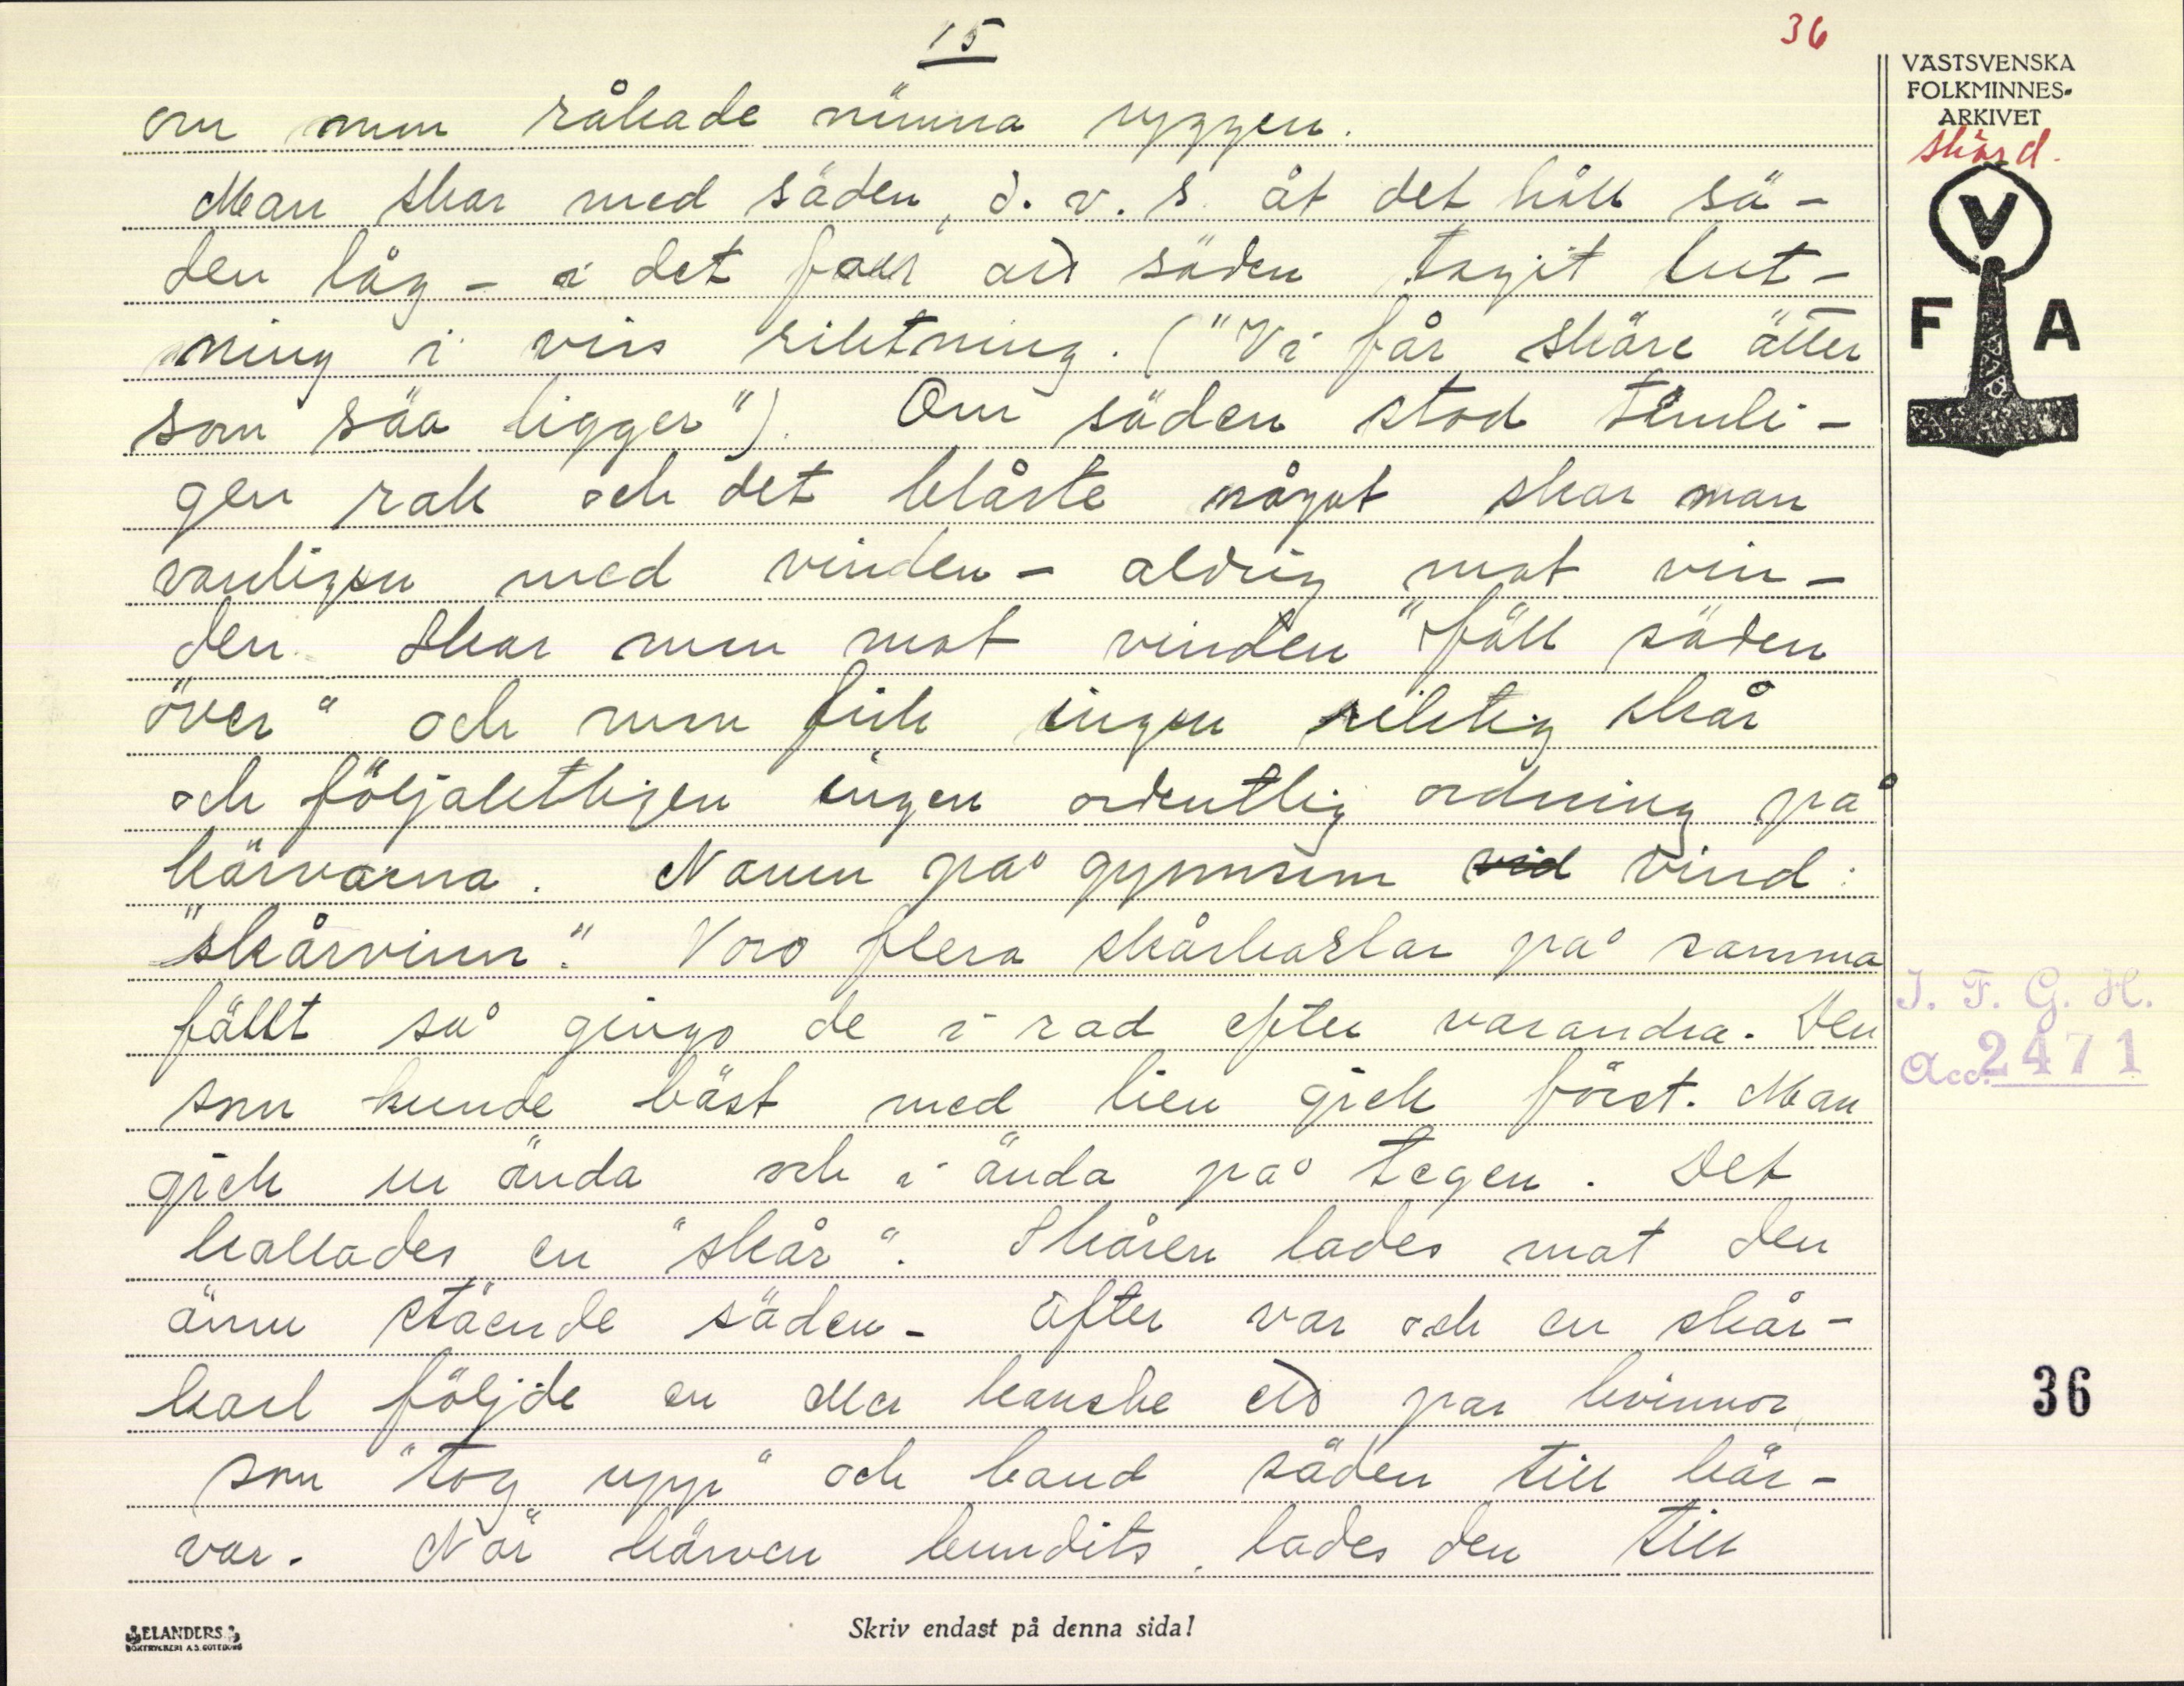 15
36
VÄSTSVENSKA
FOLKMINNES-
ARKIVET
skörd.
V
F A
om man råkade nämna ryggen.
Man skar med säden, d. v. s. åt det håll sä-
den låg - i det fall att säden tagit lut-
ning i viss riktning. ("Vi får skäre ätter
som säa ligger"). Om säden stod tämli-
gen rak och det blåste något skar man
vanligen med vinden - aldrig mot vin-
den. Skar man mot vinden "föll säden
över" och man fick ingen riktig skår
och följaktligen ingen ordentlig ordning på
kärvarna. Namn på gynnsam vid vind:
"skårvinn". Voro flera skårkarlar på samma
fällt så gingo de i rad efter varandra. Den
som kunde bäst med lien gick först. Man
gick en ända och i ända på tegen. Det
kallades en "skår". Skåren lades mot den
ännu stående säden. Efter var och en skår-
karl följde en eller kanske ett par kvinnor,
som "tog upp" och band säden till kär-
var. När kärven bundits, lades den till
I. F. G. H.
Acc. 2471
36
ELANDERS
BOKTRYCKERI A.B. GÖTEBORG
Skriv endast på denna sida!